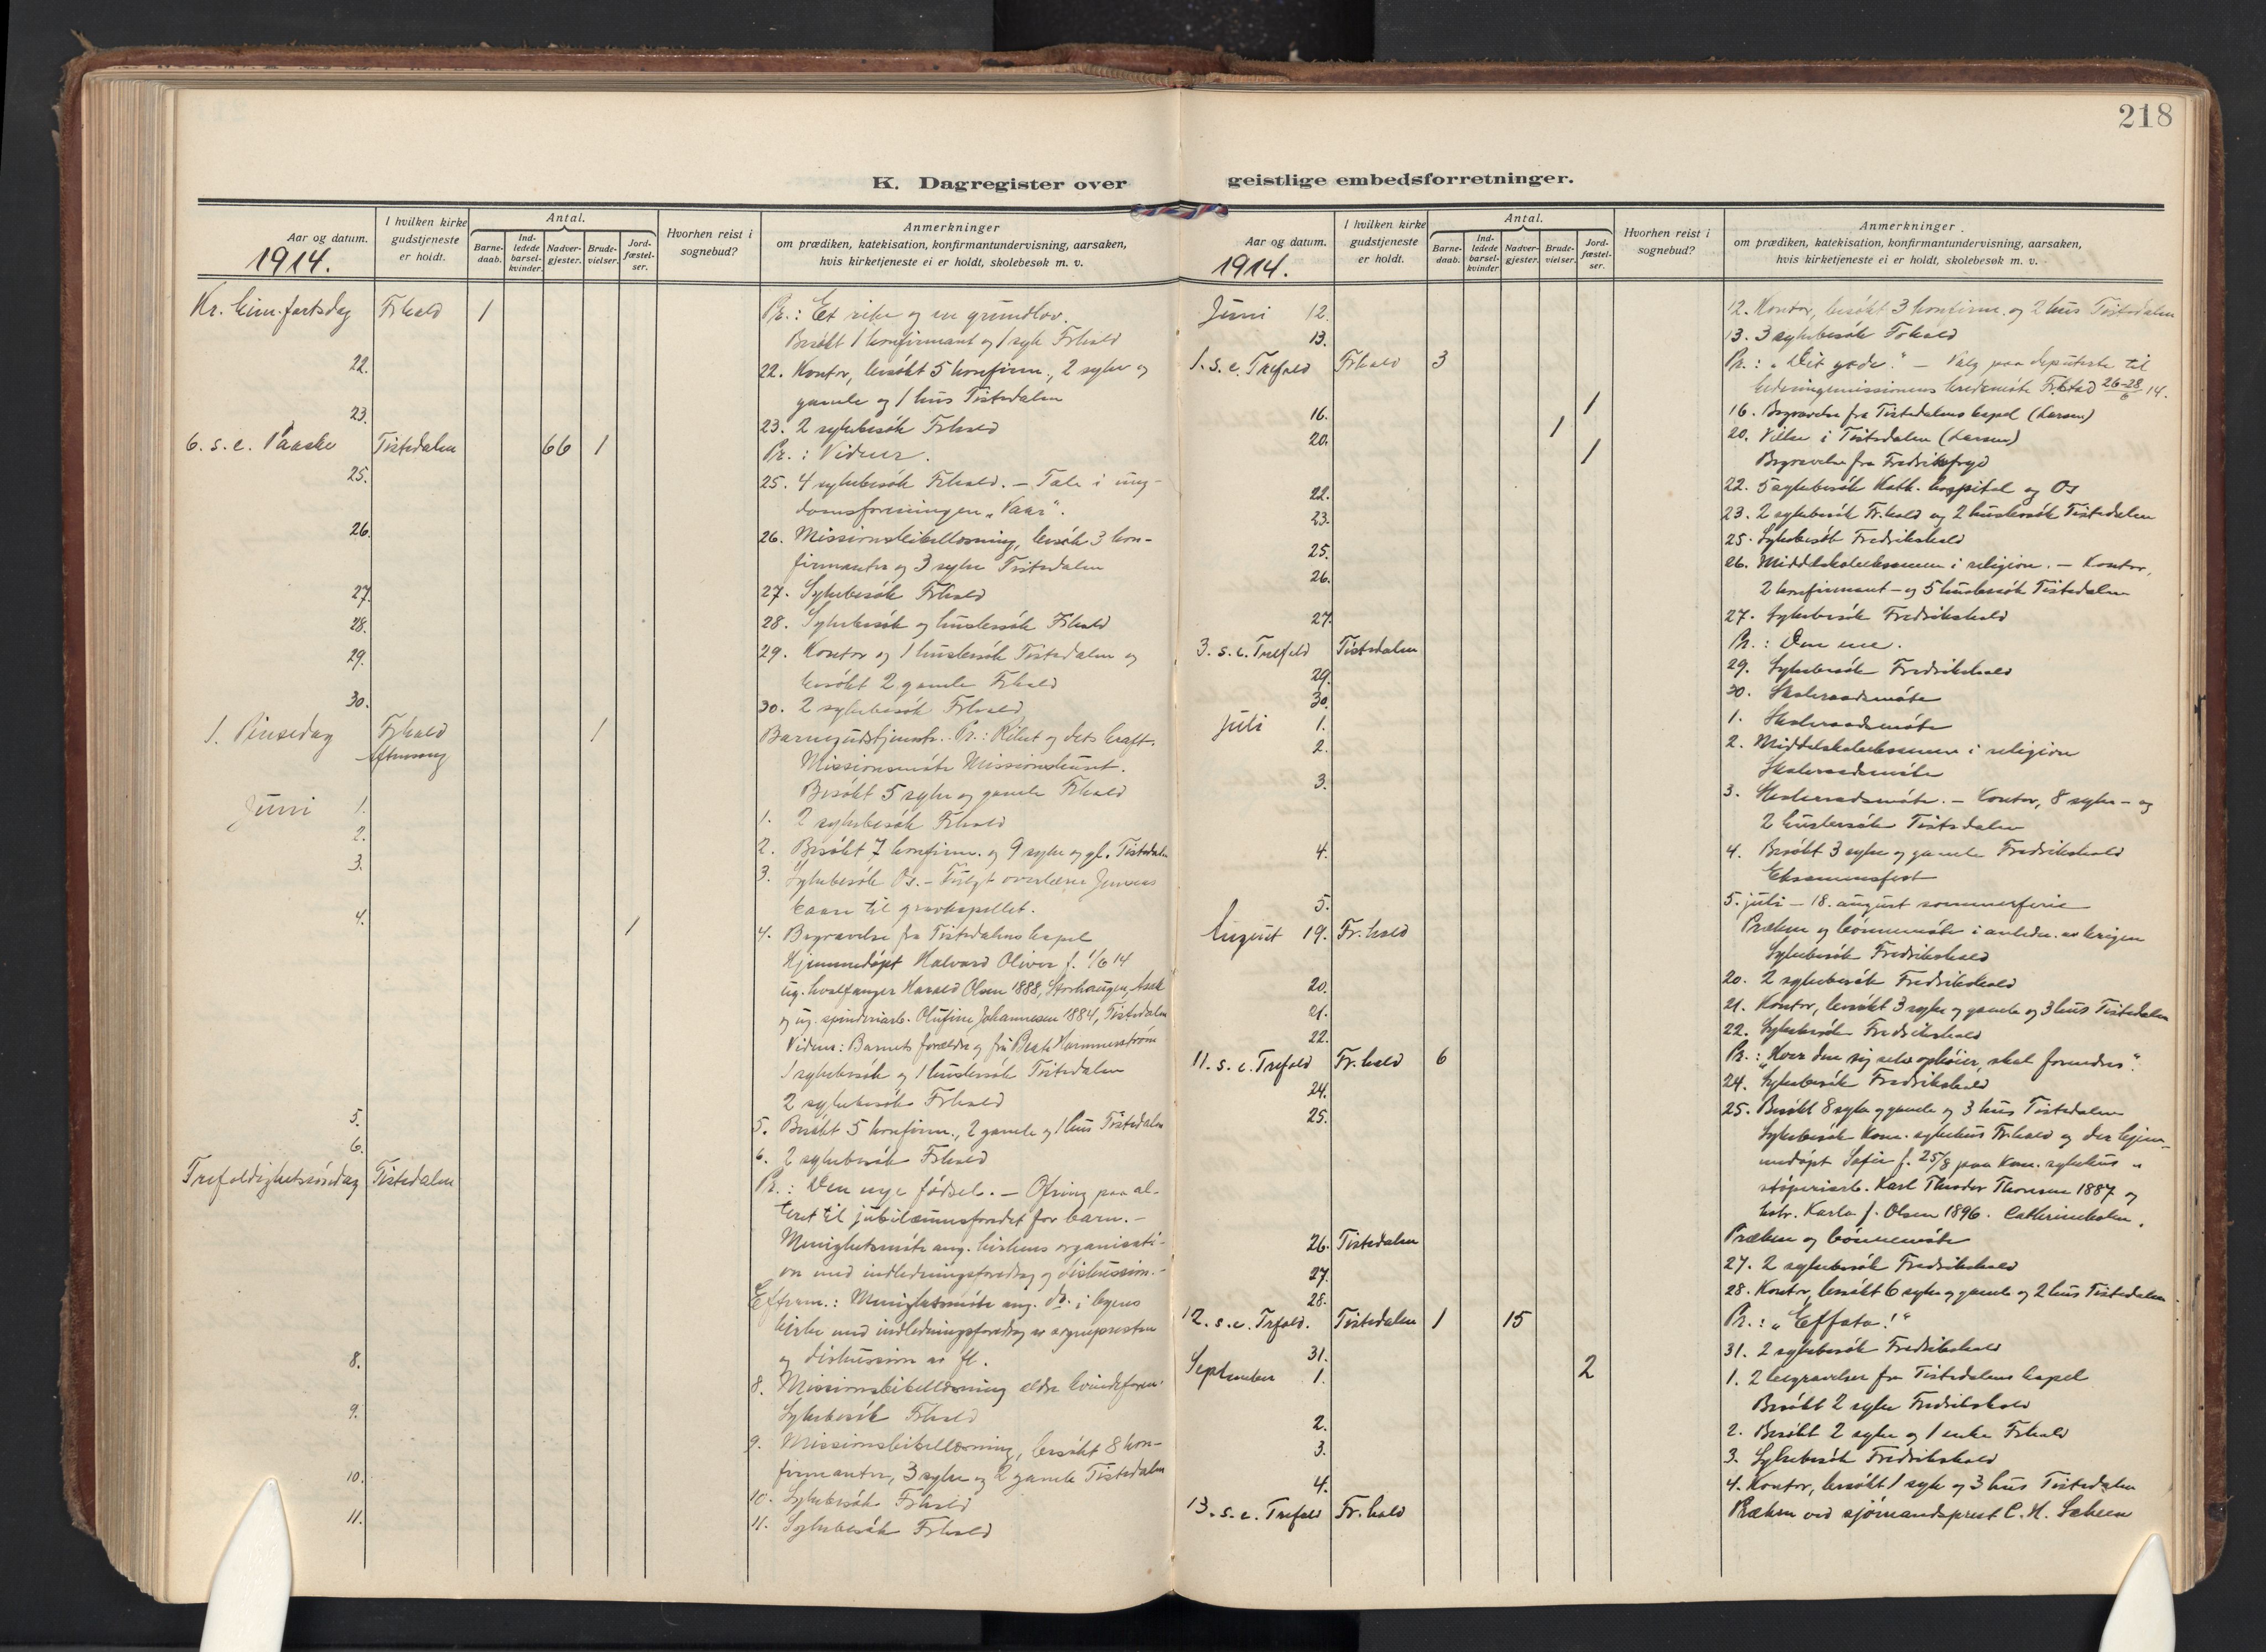 218
K. Dagregister over
geistlige embedsforretninger.
Aar og datum.
1914.
I hvilken kirke
gudstjeneste
er holdt.
Antal.
Barne-
daab.
Ind-
ledede
barsel-
kvinder.
Nadver-
gjester.
Brude-
vielser.
Jord-
fæstel-
ser.
Hvorhen reist i
sognebud?
Anmerkninger
om prædiken, katekisation, konfirmantundervisning, aarsaken,
hvis kirketjeneste ei er holdt, skolebesøk m. v.
Kr. himmelfartsdag Frhald 1 Pr.: Et rike og en grundlov.
Besøkt 1 konfirmant og 1 syk Frhald
22. 22. Kontor, besøkt 5 konfirm., 2 syke og
gamle og 1 hus Tistedalen
23. 23. 2 sykebesøk Frhald
6. s. e. Paaske Tistedalen 66 1 Pr.: Vidner.
25. 25. 4 sykebesøk Frhald. – Tale i ung-
domsforeningen „Vaar“.
26. 26. Missionsbibellæsning, besøk 3 kon-
firmanter og 3 syke Tistedalen
27. 27. Sykebesøk Frhald
28. 28. Sykebesøk og husbesøk Frhald
29. 29. Kontor og 1 husbesøk Tistedalen og
besøkt 2 gamle Frhald
30. 30. 2 sykebesøk Frhald
1. Pinsedag Frhald 1 Barnegudstjeneste. Pr.: Riket og dets kraft.
Aftensang Missionsmøte Missionshuset.
Besøkt 5 syke og gamle Frhald
Juni 1. 1. 2 sykebesøk Frhald
2. 2. Besøkt 7 konfirm. og 9 syke og gl. Tistedalen
3. 3. Sykebesøk Os. – Fulgt overlærer Jensens
baare til gravkapellet.
4. 1 4. Begravelse fra Tistedalens kapel
Hjemmedøpt Halvard Oliver f. 1/6 14
ug. hvalfanger Harald Olsen 1888, Storhaugen, Asak
og ug. spinderiarb. Olufine Johannesen 1884, Tistedalen
Vidner: Barnets forældre og fru Beate Hammerstrøm
1 sykebesøk og 1 husbesøk Tistedalen
2 sykebesøk Frhald
5. 5. Besøkt 5 konfirm., 2 gamle og 1 hus Tistedalen
6. 6. 2 sykebesøk Frhald
Trefoldighetssøndag Tistedalen Pr.: Den nye fødsel. – Ofring paa al-
teret til jubilæumsfondet for barn. –
Menighetsmøte ang. kirkens organisati-
on med indledningsforedrag og diskussion. –
Efterm.: Menighetsmøte ang. do. i byens
kirke med indledningsforedrag av sognepresten
og diskussion av fl.
8. 8. Missionsbibellæsning ældre kvindeforen.
Sykebesøk Frhald
9. 9. Missionsbibellæsning, besøkt 8 kon-
firmanter, 3 syke og 2 gamle Tistedalen
10. 10. Sykebesøk Frhald
11. 11. Sykebesøk Frhald
Aar og datum.
1914.
I hvilken kirke
gudstjeneste
er holdt.
Antal.
Barne-
daab.
Ind-
ledede
barsel-
kvinder
Nadver-
gjester.
Brude-
vielser.
Jord-
fæstel-
ser.
Hvorhen reist i
sognebud?
Anmerkninger.
om prædiken, katekisation, konfirmantundervisning, aarsaken,
hvis kirketjeneste ei er holdt, skolebesøk m. v.
Juni 12. 12. Kontor, besøkt 3 konfirm. og 2 hus Tistedalen
13. 13. 3 sykebesøk Frhald
1. s. e. Trefold Frhald 3 Pr.: „Dit gode.“ – Valg paa deputerte til
hedningemissionens kredsmøte Frstad 26-28/6 14.
16. 1 16. Begravelse fra Tistedalens kapel (Larsen)
20. 1 20. Vielse i Tistedalen (Larsen)
1 Begravelse fra Fredriksfryd
22. 22. 5 sykebesøk Kath. hospital og Os
23. 23. 2 sykebesøk Fr.hald og 2 husbesøk Tistedalen
25. 25. Sykebesøk Fredrikshald
26. 26. Middelskoleeksamen i religion. – Kontor,
2 konfirmant- og 5 husbesøk Tistedalen
27. 27. Sykebesøk Fredrikshald
3. s. e. Trefold Tistedalen Pr.: Den ene.
29. 29. Sykebesøk Fredrikshald
30. 30. Skoleraadsmøte
Juli 1. 1. Skoleraadsmøte
2. 2. Middelskoleeksamen i religion
Skoleraadsmøte
3. 3. Skoleraadsmøte. – Kontor, 8 syke- og
2 husbesøk Tistedalen
4. 4. Besøkt 3 syke og gamle Fredrikshald
Eksamensfest
5. 5. juli – 18. august sommerferie
August 19. Fr.hald Præken og bønnemøte i anledn. av krigen
Sykebesøk Fredrikshald
20. 20. 2 sykebesøk Fredrikshald
21. 21. Kontor, besøkt 3 syke og gamle og 3 hus Tistedalen
22. 22. Sykebesøk Fredrikshald
11. s. e. Trefold Fr.hald 6 Pr.: „Hver den sig selv ophøier, skal fornedres“.
24. 24. Sykebesøk Fredrikshald
25. 25. Besøkt 8 syke og gamle og 3 hus Tistedalen
Sykebesøk Kom. sykehus Frhald og der hjem-
medøpt Sofie f. 25/8 paa Kom. sykehus av
støperiarb. Karl Theodor Thoresen 1887 og
hstr. Karla f. Olsen 1896. Cathrineholm.
26. Tistedalen Præken og bønnemøte
27. 27. 2 sykebesøk Fredrikshald
28. 28. Kontor, besøkt 6 syke og gamle og 2 hus Tistedalen.
12. s. e. Trefold. Tistedalen 1 15 Pr.: „Effata!“
31. 31. 2 sykebesøk Fredrikshald
September 1. 2 1. 2 begravelser fra Tistedalens kapel
Besøkt 2 syke Fredrikshald
2. 2. Besøkt 2 syke og 1 enke Frhald
3. 3. Sykebesøk Fredrikshald
4. 4. Kontor, besøkt 1 syk og 3 hus Tistedalen
13. s. e. Trefold Fr.hald Præken ved sjømandsprest C. H.